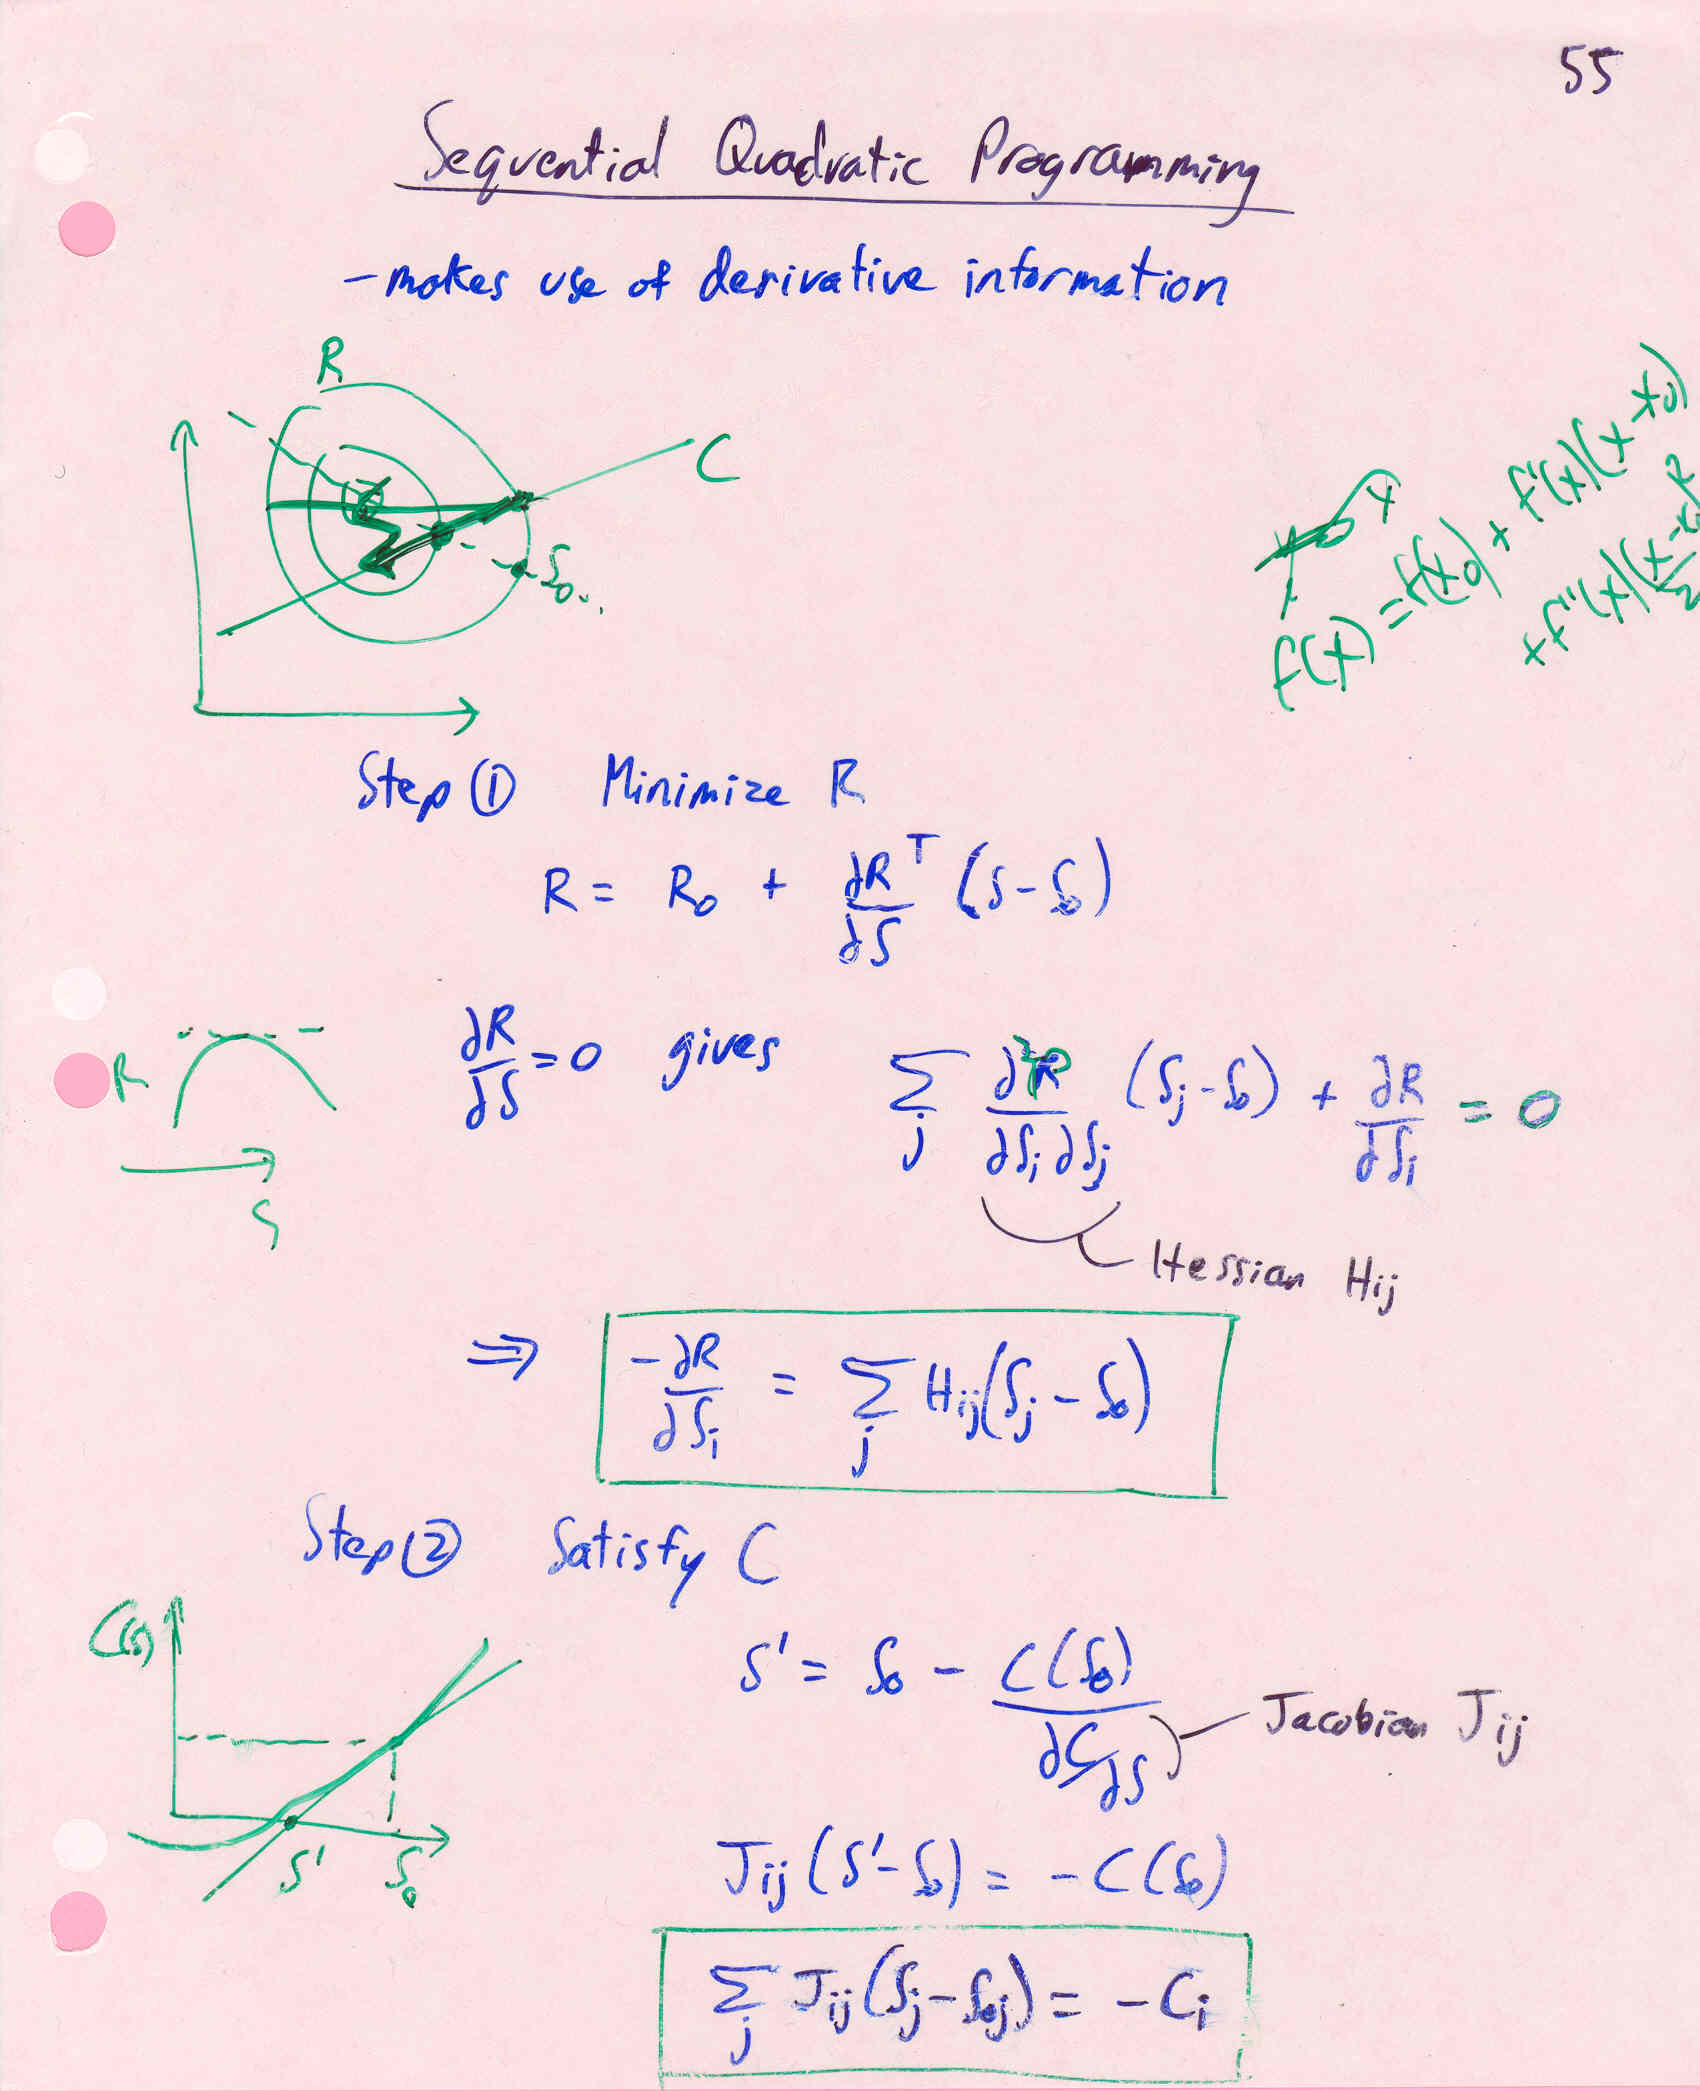 55
Sequential Quadratic Programming
- makes use of derivative information
R
C
S₀
f(x) = f(x₀) + f'(x)(x-x₀)
+ f''(x)(x-x₀)²/2
Step ① Minimize R
R = R₀ + ∂R/∂S ᵀ (S - S₀)
R
S
∂R/∂S = 0 gives ∑j ∂²R/∂Si∂Sj (Sj - S₀) + ∂R/∂Si = 0
Hessian Hij
⇒ -∂R/∂Si = ∑j Hij(Sj - S₀)
Step ② Satisfy C
C(s)
S'
S₀
S' = S₀ - C(S₀)/(∂C/∂S)
Jacobian Jij
Jij(S' - S₀) = -C(S₀)
∑j Jij(Sj - S₀j) = -Ci